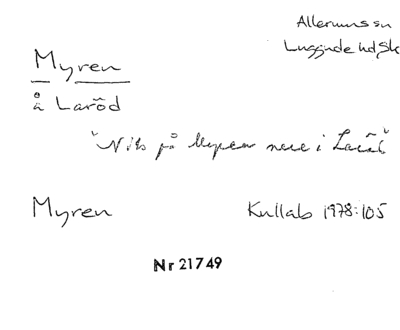 Allerums sn
Luggude hd, Sk
Myren
å Laröd
"Nils på Myren nere i Laröd"
Myren
Kullab 1978:105
Nr 21749